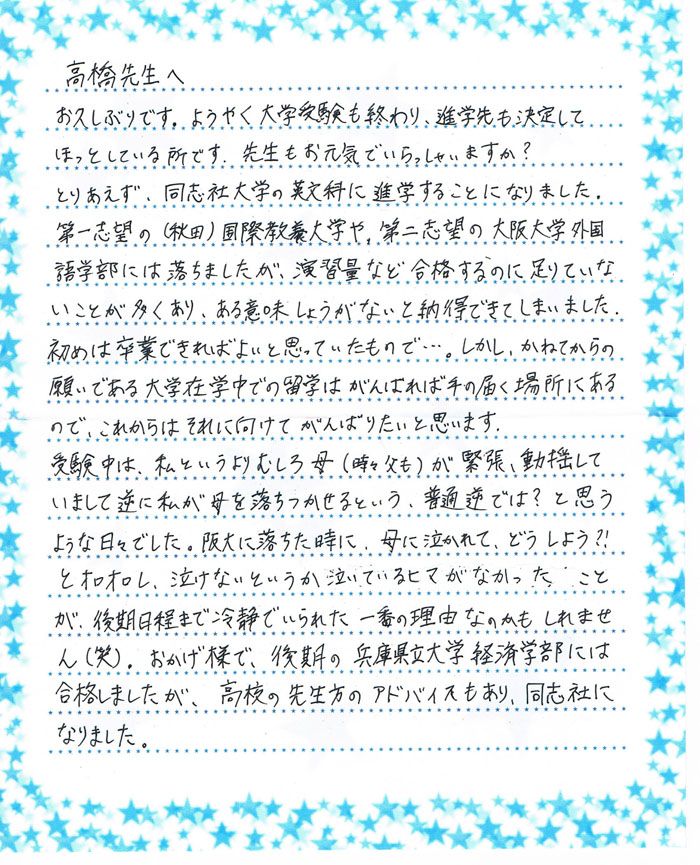 高橋先生へ
お久しぶりです。ようやく大学受験も終わり、進学先も決定して
ほっとしている所です。先生もお元気でいらっしゃいますか?
とりあえず、同志社大学の英文科に進学することになりました。
第一志望の(秋田)国際教養大学や、第二志望の大阪大学外国
語学部には落ちましたが、演習量など合格するのに足りていな
いことが多くあり、ある意味しょうがないと納得できてしまいました。
初めは卒業できればよいと思っていたもので…。しかし、かねてからの
願いである大学在学中での留学はがんばれば手の届く場所にある
ので、これからはそれに向けてがんばりたいと思います。
受験中は、私というよりむしろ母(時々父も)が緊張、動揺して
いまして逆に私が母を落ちつかせるという、普通逆では?と思う
ような日々でした。阪大に落ちた時に、母に泣かれて、どうしよう?!
とオロオロし、泣けないというか泣いているヒマがなかった、こと
が、後期日程まで冷静でいられた一番の理由なのかもしれませ
ん(笑)。おかげ様で、後期の兵庫県立大学経済学部には
合格しましたが、高校の先生方のアドバイスもあり、同志社に
なりました。